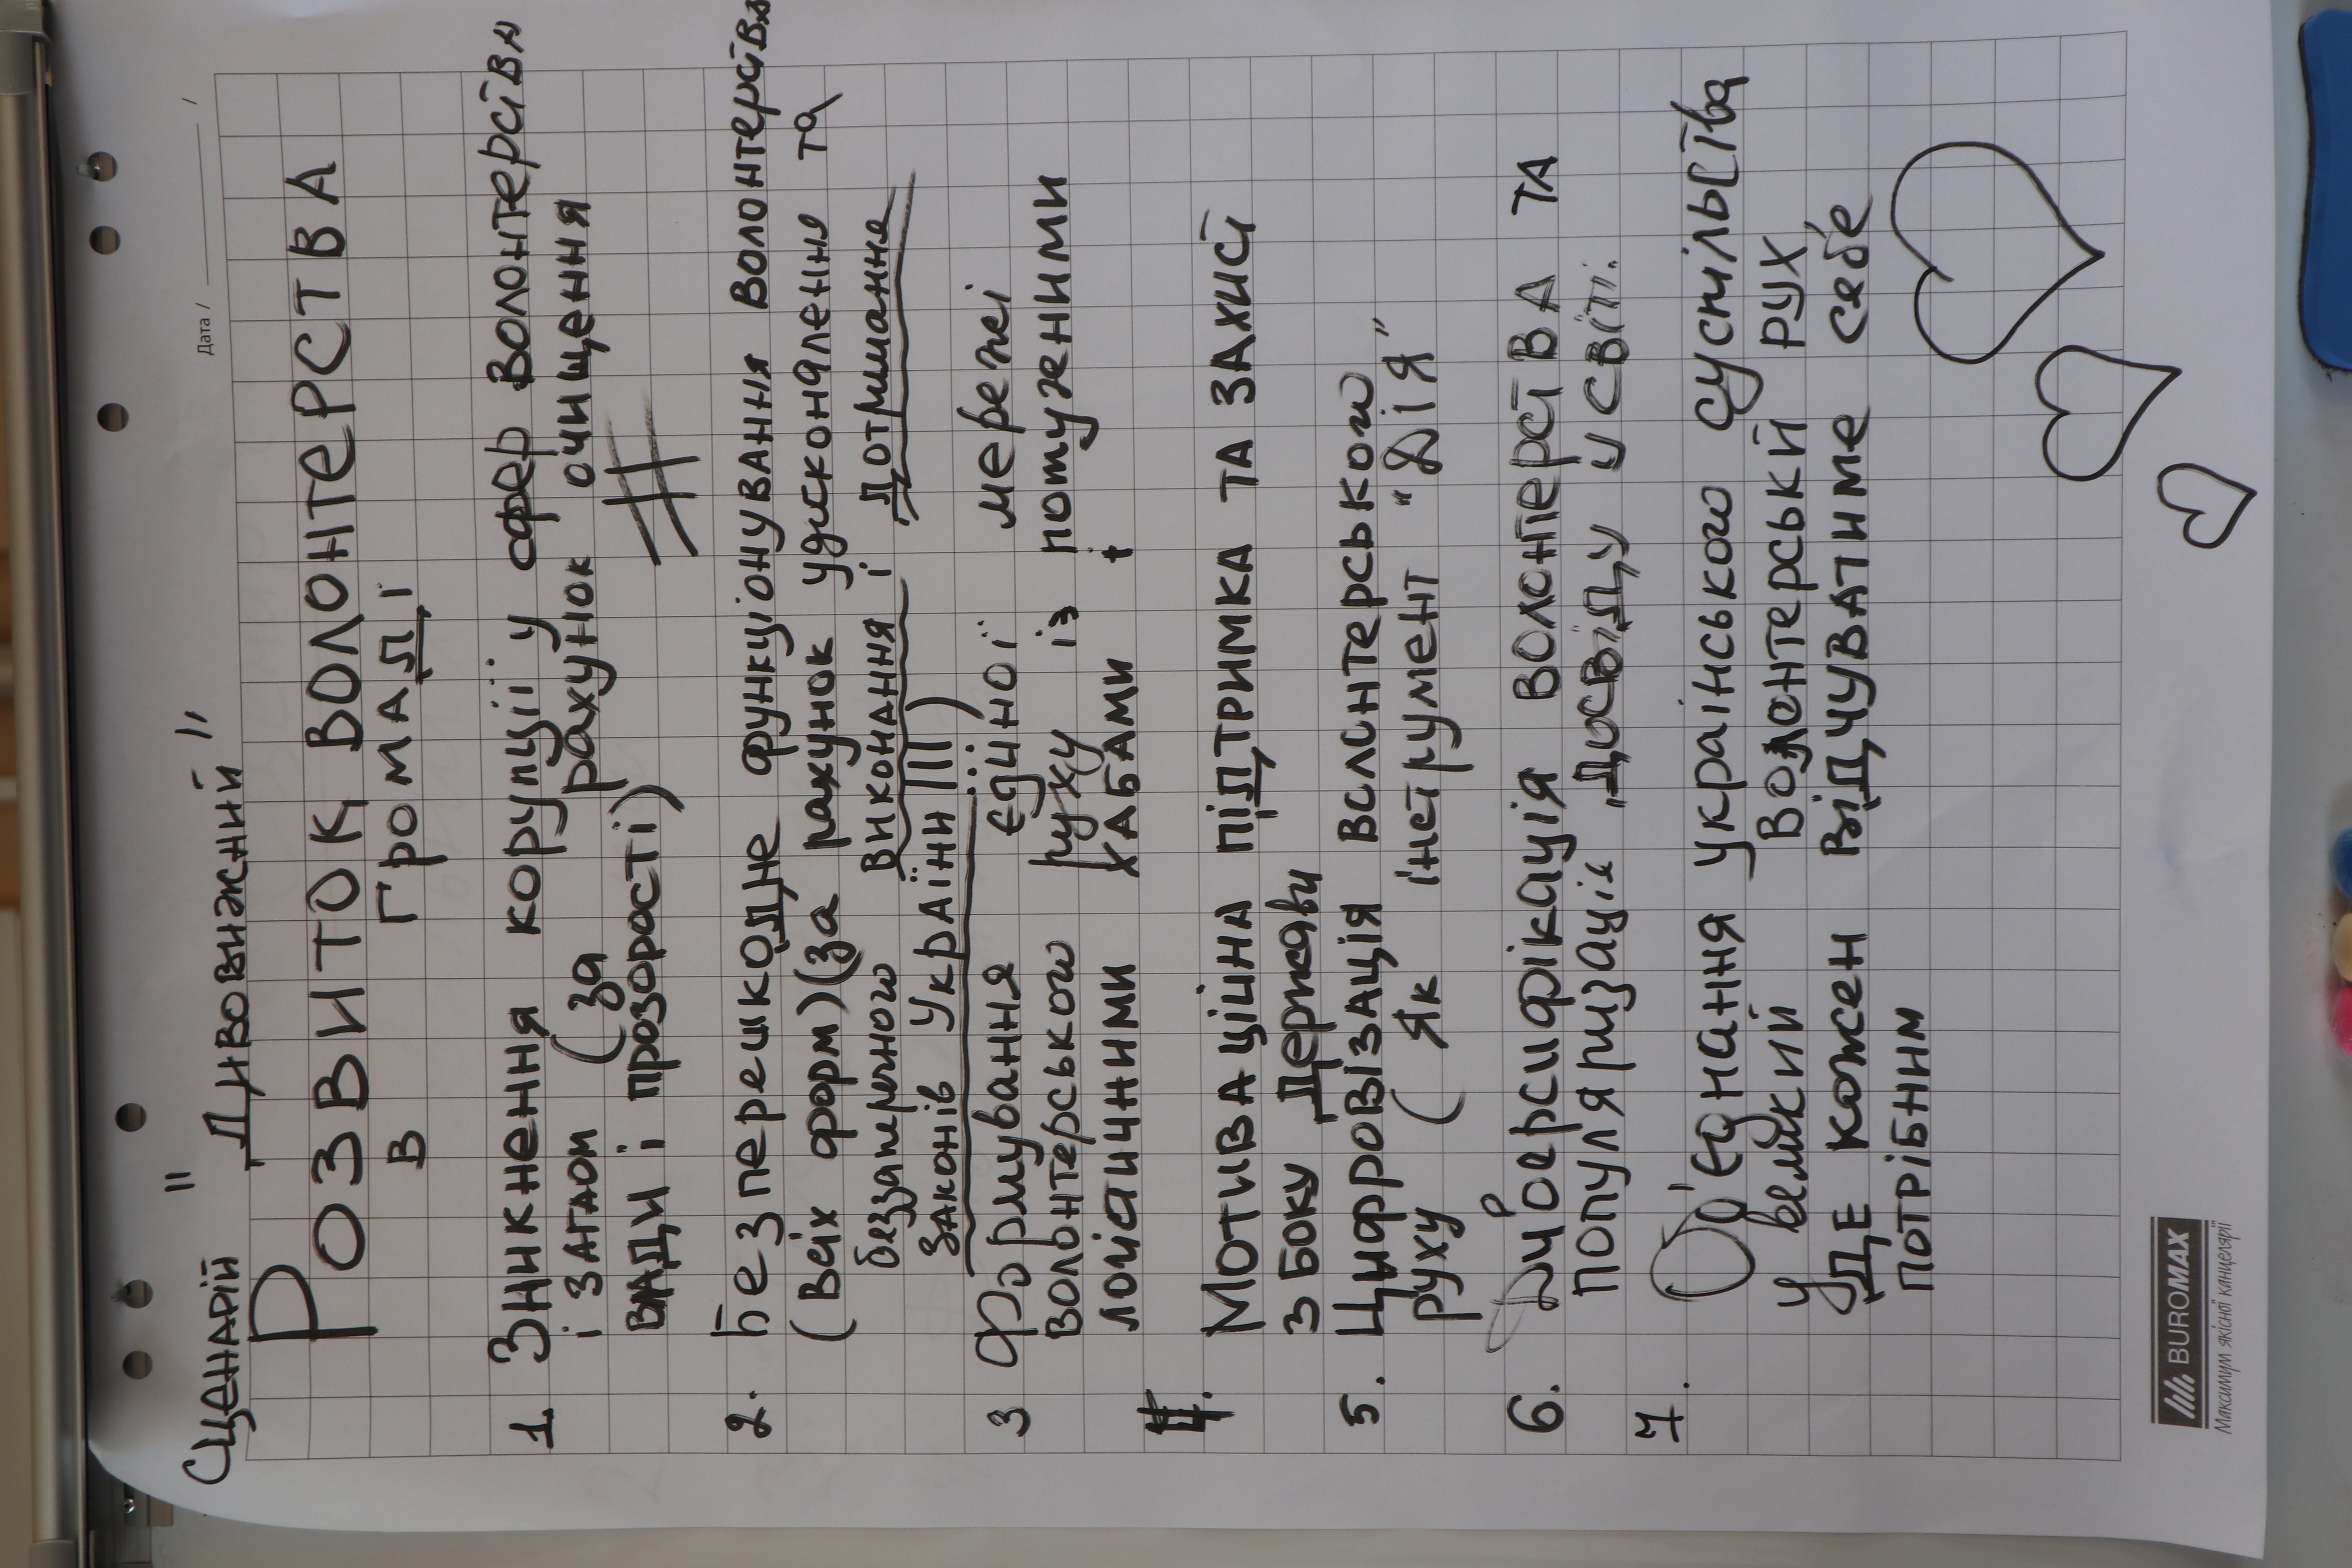 Дата / /
Сценарій " Дивовижний "
Розвиток волонтерства
в громаді
1. Зникнення корупції у сфер волонтерства
і загалом (за рахунок очищення
влади і прозорості)
2. Безперешкодне функціонування волонтерства
(всіх форм) (за рахунок удосконалення та
беззаперечного виконання і дотримання
законів України!!!)
3 Формування єдиної мережі
волонтерського руху із потужними
логістичними хабами
4. Мотиваційна підтримка та захист
з боку держави
5. Цифровізація волонтерського
руху (як інструмент "Дія"
6. волонтерства та
популяризація досвіду у світі.
7. Об'єднання українського суспільства
у великий волонтерський рух,
де кожен відчуватиме себе
потрібним
BUROMAX
Максимум якісної канцелярії